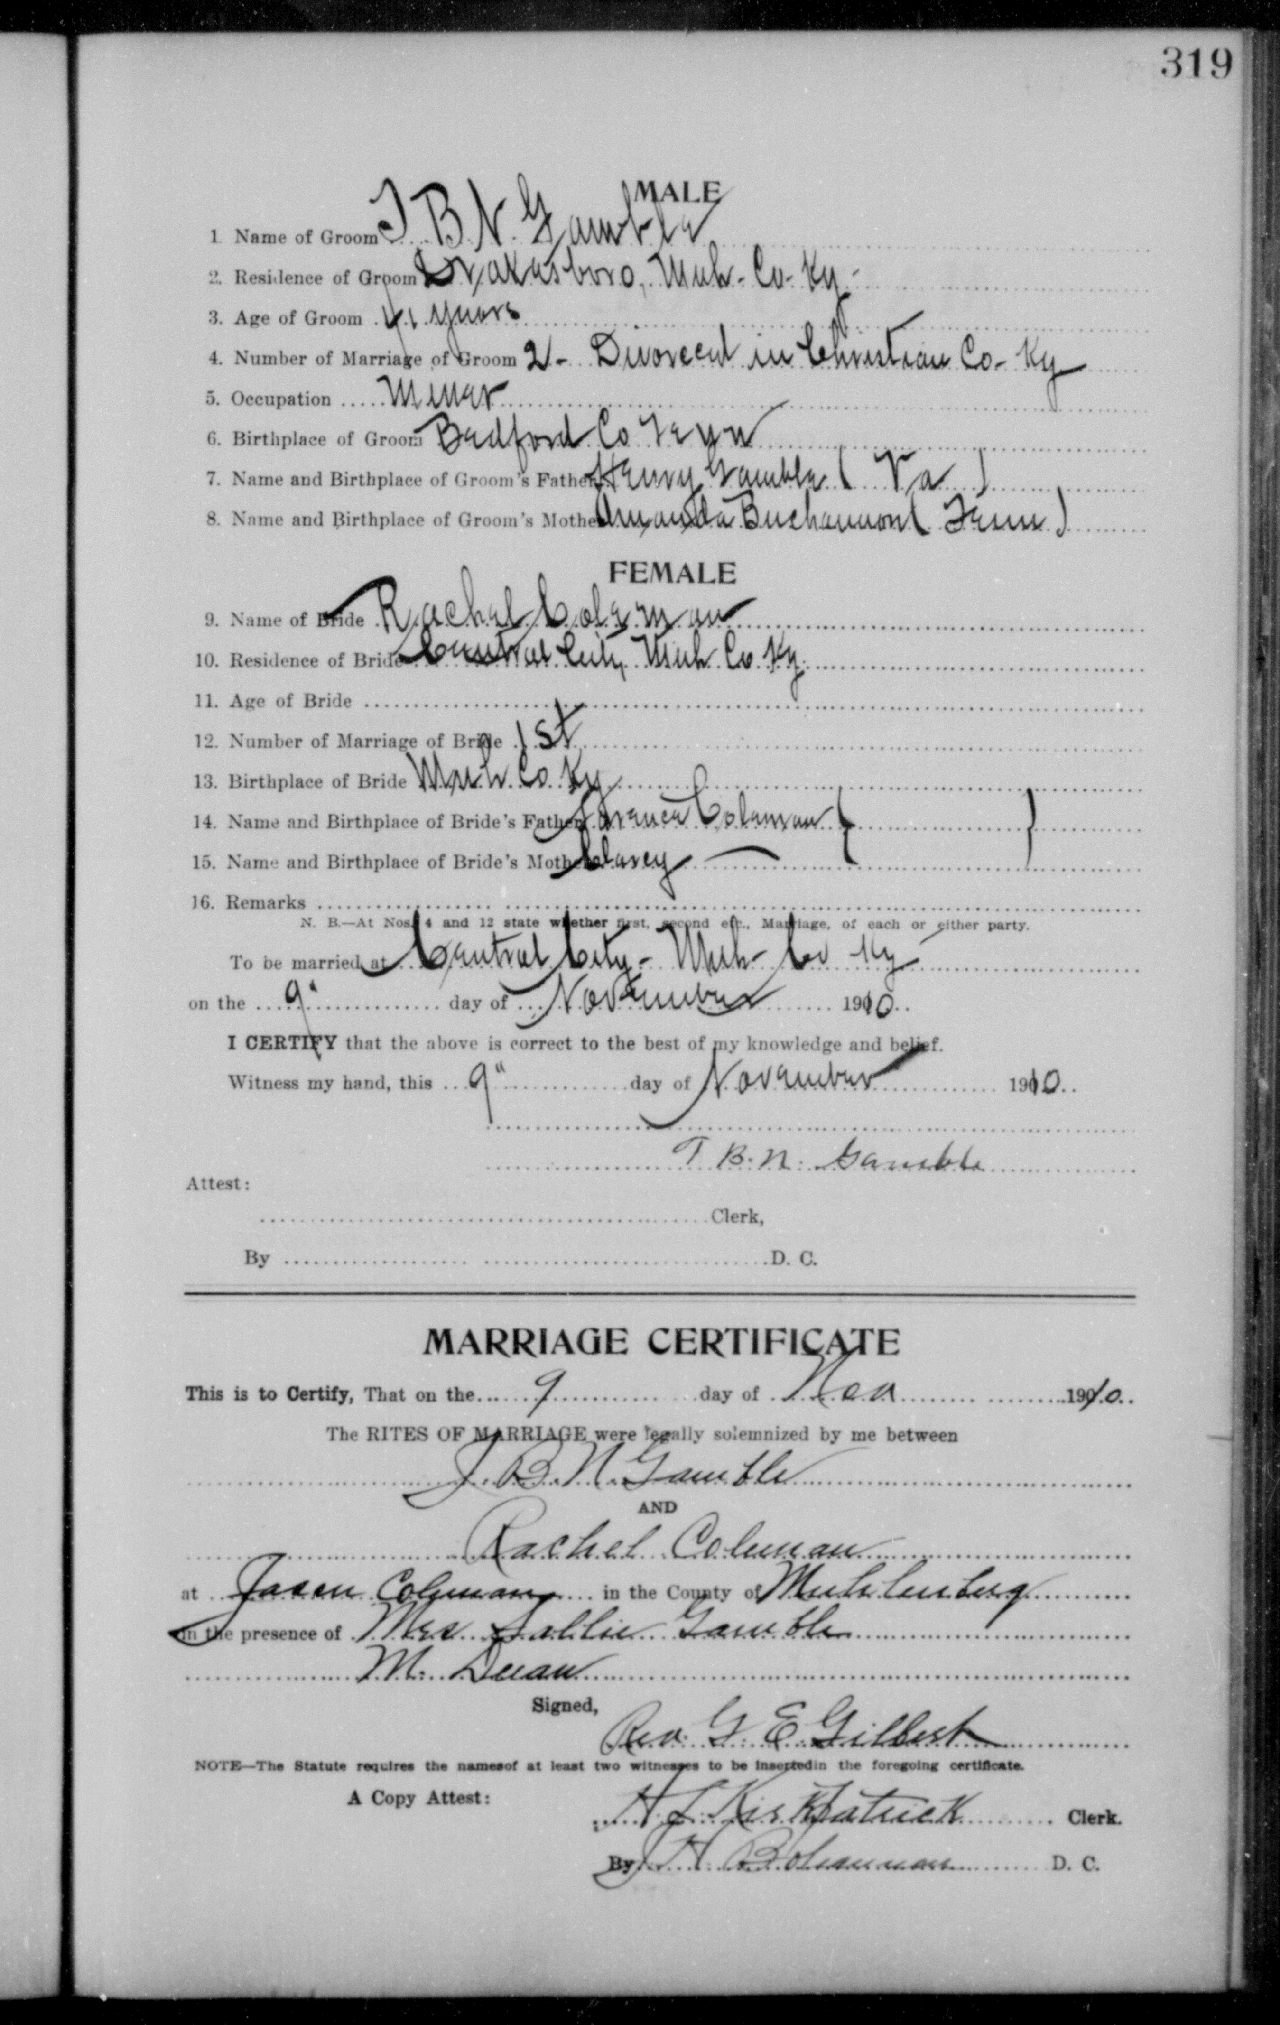 319
MALE
1. Name of Groom T B N. Gamble
2. Residence of Groom Drakesboro, Muh- Co- Ky-
3. Age of Groom 41 years
4. Number of Marriage of Groom 2- Divorced in Christian Co- Ky
5. Occupation Miner
6. Birthplace of Groom Bedford Co Tenn
7. Name and Birthplace of Groom's Father Henry Gamble ( Va )
8. Name and Birthplace of Groom's Mother Amanda Buchannon ( Tenn )
FEMALE
9. Name of Bride Rachel Coleman
10. Residence of Bride Central City, Muh Co Ky.
11. Age of Bride
12. Number of Marriage of Bride 1st
13. Birthplace of Bride Muh Co Ky
14. Name and Birthplace of Bride's Father Coleman { }
15. Name and Birthplace of Bride's Mother —
16. Remarks
N. B.—At Nos. 4 and 12 state whether first, second etc., Marriage, of each or either party.
To be married at Central City- Muh- Co Ky-
on the 9" day of November 1910
I CERTIFY that the above is correct to the best of my knowledge and belief.
Witness my hand, this 9" day of November 1910
T B. N. Gamble
Attest:
Clerk,
By D. C.
MARRIAGE CERTIFICATE
This is to Certify, That on the 9 day of Nov 1910
The RITES OF MARRIAGE were legally solemnized by me between
J. B. N. Gamble
AND
Rachel Coleman
at Jason Colemans in the County of Muhlenberg
in the presence of Mrs Sallie Gamble
M.
Signed,
Rev. G. E Gilbert
NOTE—The Statute requires the namesof at least two witnesses to be insertedin the foregoing certificate.
A Copy Attest: H L Kirkpatrick Clerk.
By J H Bohannan D. C.